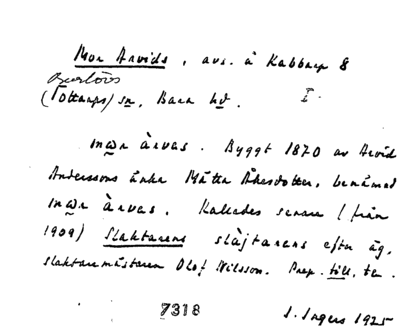 Mor Arvids, avs. å Kabbarp 8
Burlövs
(Tottarps) sn, Bara hd. I.
mɷr àrvas. Byggt 1870 av Arvid
Anderssons änka Mätta Åkesdotter, benämnd
mɷr àrvas. Kallades senare (från
1909) Slaktarens slàjtarens efter äg.
slaktaremästaren Olof Nilsson. Prep. till, te.
7318 I. Ingers 1925